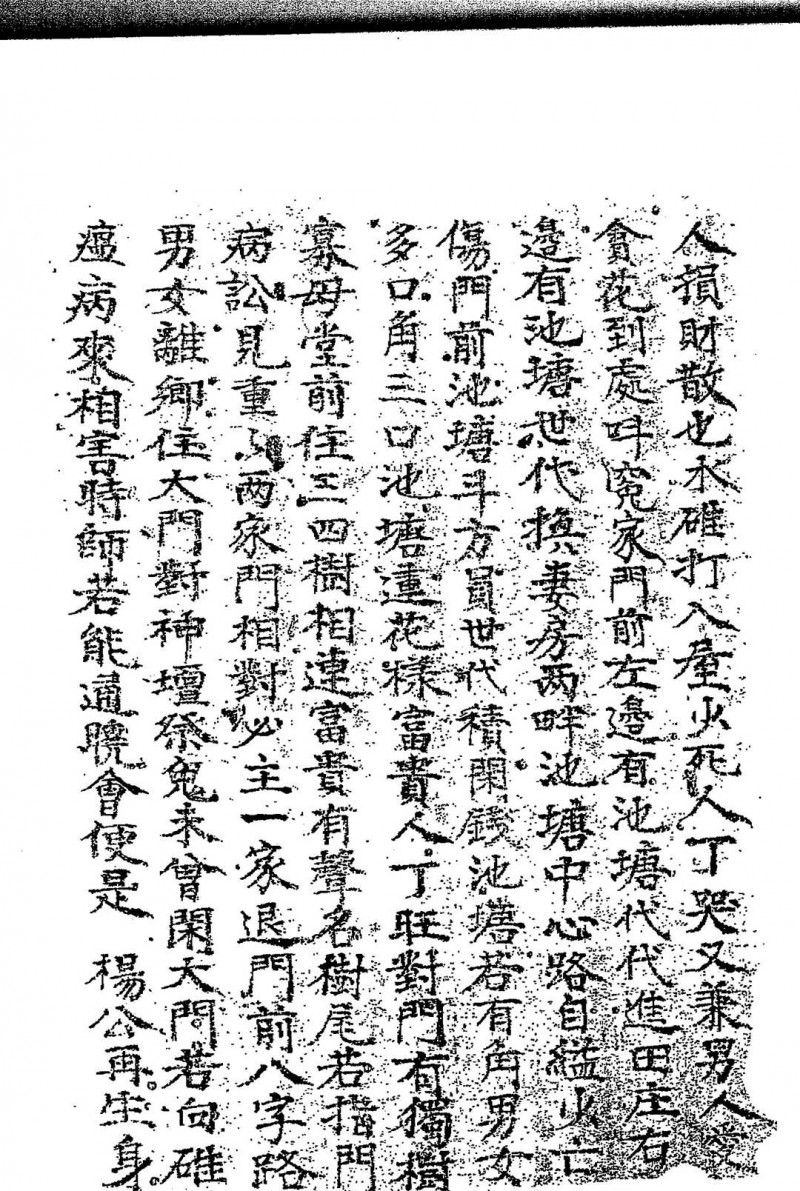 人損財散也水碓打入屋少死人丁哭又兼男人愛
貪花到處呌冤家門前左邉有池塘代代進田庄右
邉有池塘世代換妻房两畔池塘中心路自縊少亡
傷門前池塘斗方員世代積閑錢池塘若有角男女
多口角三口池塘蓮花樣富貴人丁旺對門有獨樹
寡母堂前住三四樹相連富貴有聲名樹尾若指門
病訟見重重两家門相對必主一家退門前八字路
男女離卿住大門對神壇祭鬼未曾閑大門若向碓
瘟病來相害時師若能通曉會便是 楊公再生身